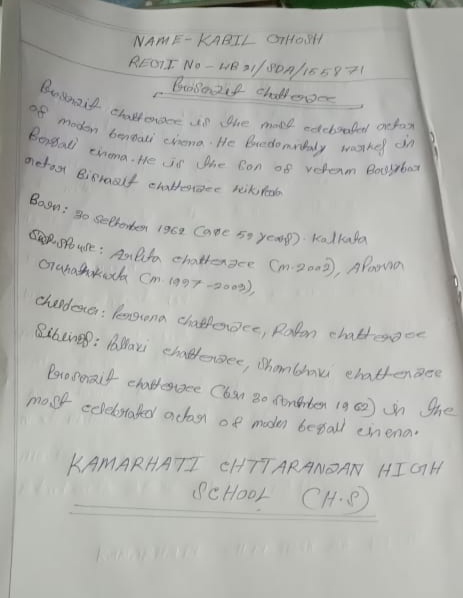 NAME - KABIL GHOSH
REGI No - WB21/SDA/155871
Prosenzit chatterzee
Prosenzit chatterzee is the most celebrated actor
of moden bengali cinema. He Predominaly worked in
Bengali cinema. He is the Son of veteram Bollybor
actor Biswazit chatterzee wikipeda
Born: 30 September 1962 (age 59 years). Kolkata
Spouse: Arpita chatterzee (m. 2002), Aparna
Guhathakurta (m. 1997-2002),
children: Prerona chatterzee, chatterzee
Siblings: Pallavi chatterzee, Shombhavi chatterzee
Prosenzit chatterzee (born 30 September 1962) is the
most celebrated actor of moden begali cinema.
KAMARHATI CHTTARANJAN HIGH
SCHOOL (H.S)